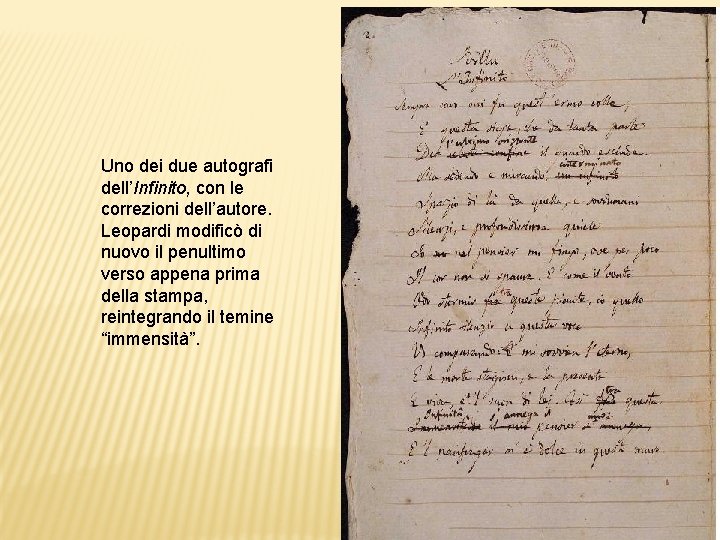 Uno dei due autografi
dell'Infinito, con le
correzioni dell'autore.
Leopardi modificò di
nuovo il penultimo
verso appena prima
della stampa,
reintegrando il temine
“immensità”.
2.
Idillio
L'Infinito
Sempre caro mi fu quest' ermo colle,
E questa siepe, che da tanta parte
l'ultimo orizzonte
Del celeste confine il guardo esclude.
interminato
Ma sedendo e mirando, un infinito
Spazio di là da quella, e sovrumani
Silenzi, e profondissima quiete
Io nel pensier mi fingo, ove per poco
Il cor non si spaura. E come il vento
tra
Odo stormir fra queste piante, io quello
Infinito silenzio a questa voce
Vo comparando: e mi sovvien l'eterno,
E le morte stagioni, e la presente
E viva, e 'l suon di lei. Così tra questa
Infinità s'annega il mio
Immensitade il mio pensier s' annega,
E 'l naufragar m' è dolce in questo mare.